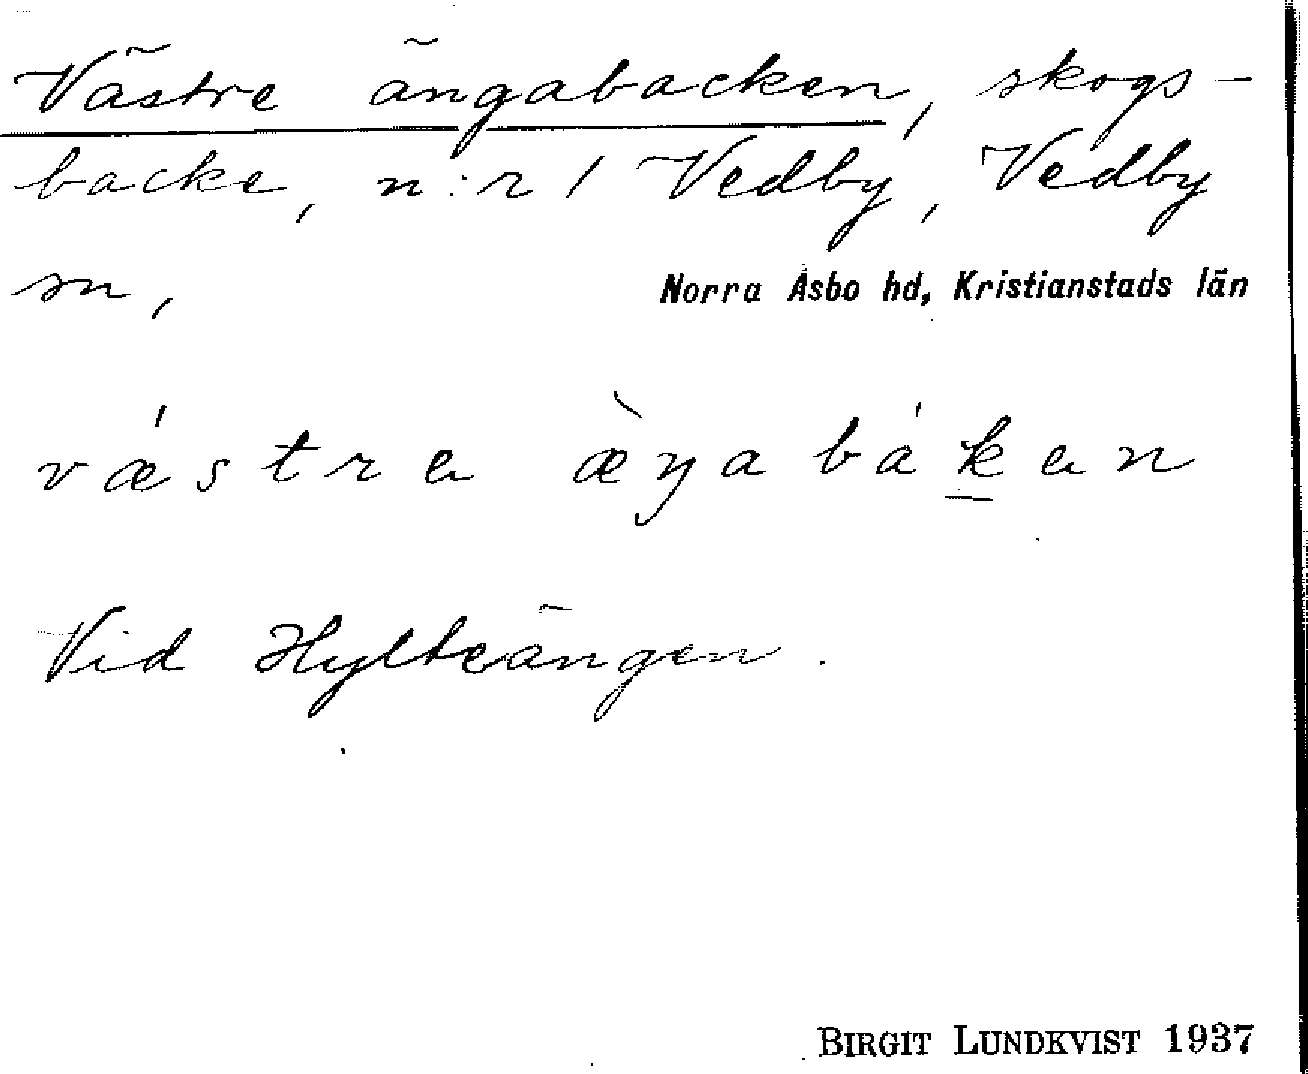 Västre ängabacken, skogs-
backe, n:r 1 Vedby, Vedby
sn,
Norra Åsbo hd, Kristianstads län
vǽstra æ̀ŋabák̲an
Vid Hylteängen.
BIRGIT LUNDKVIST 1937